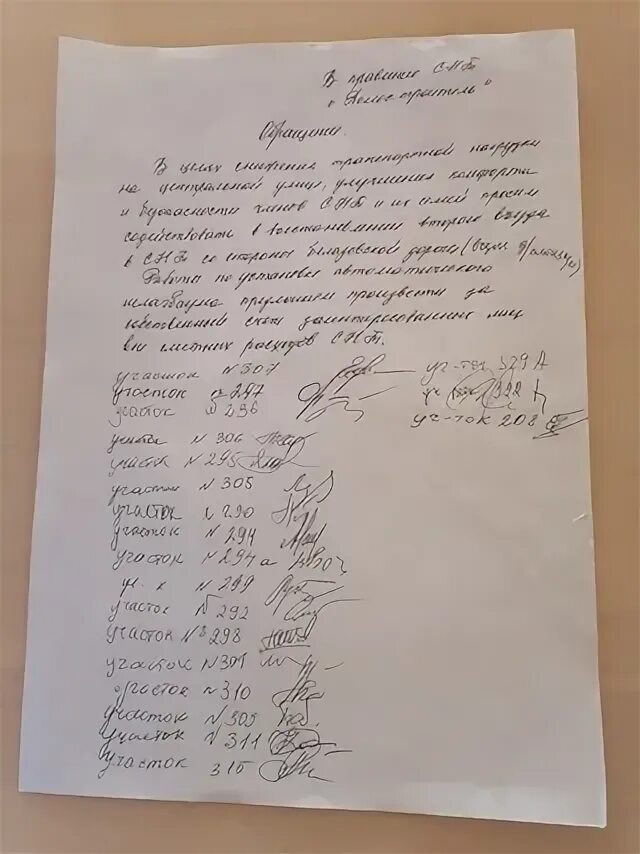 В правление СНТ
"Домостроитель"
Обращение.
В целях снижения транспортной нагрузки
на центральной улице, улучшения комфорта
и безопасности членов СНТ и их семей просим
содействовать в восстановлении второго въезда
в СНТ со стороны дороги
Работы по установке автоматического
шлагбаума предлагаем произвести за
собственный счет заинтересованных лиц
вне сметных расходов СНТ.
участок N 307
участок 247
участок N 296
участок N 306
участок N 295
участок N 305
участок 290
участок N 294
участок N 294а
уч-к N 299
участок N 292
участок N 298
участок N 301
участок N 310
участок N 303
участок N 311
участок 315
уч-ток 329 А
уч-ток 322
уч-ток 208